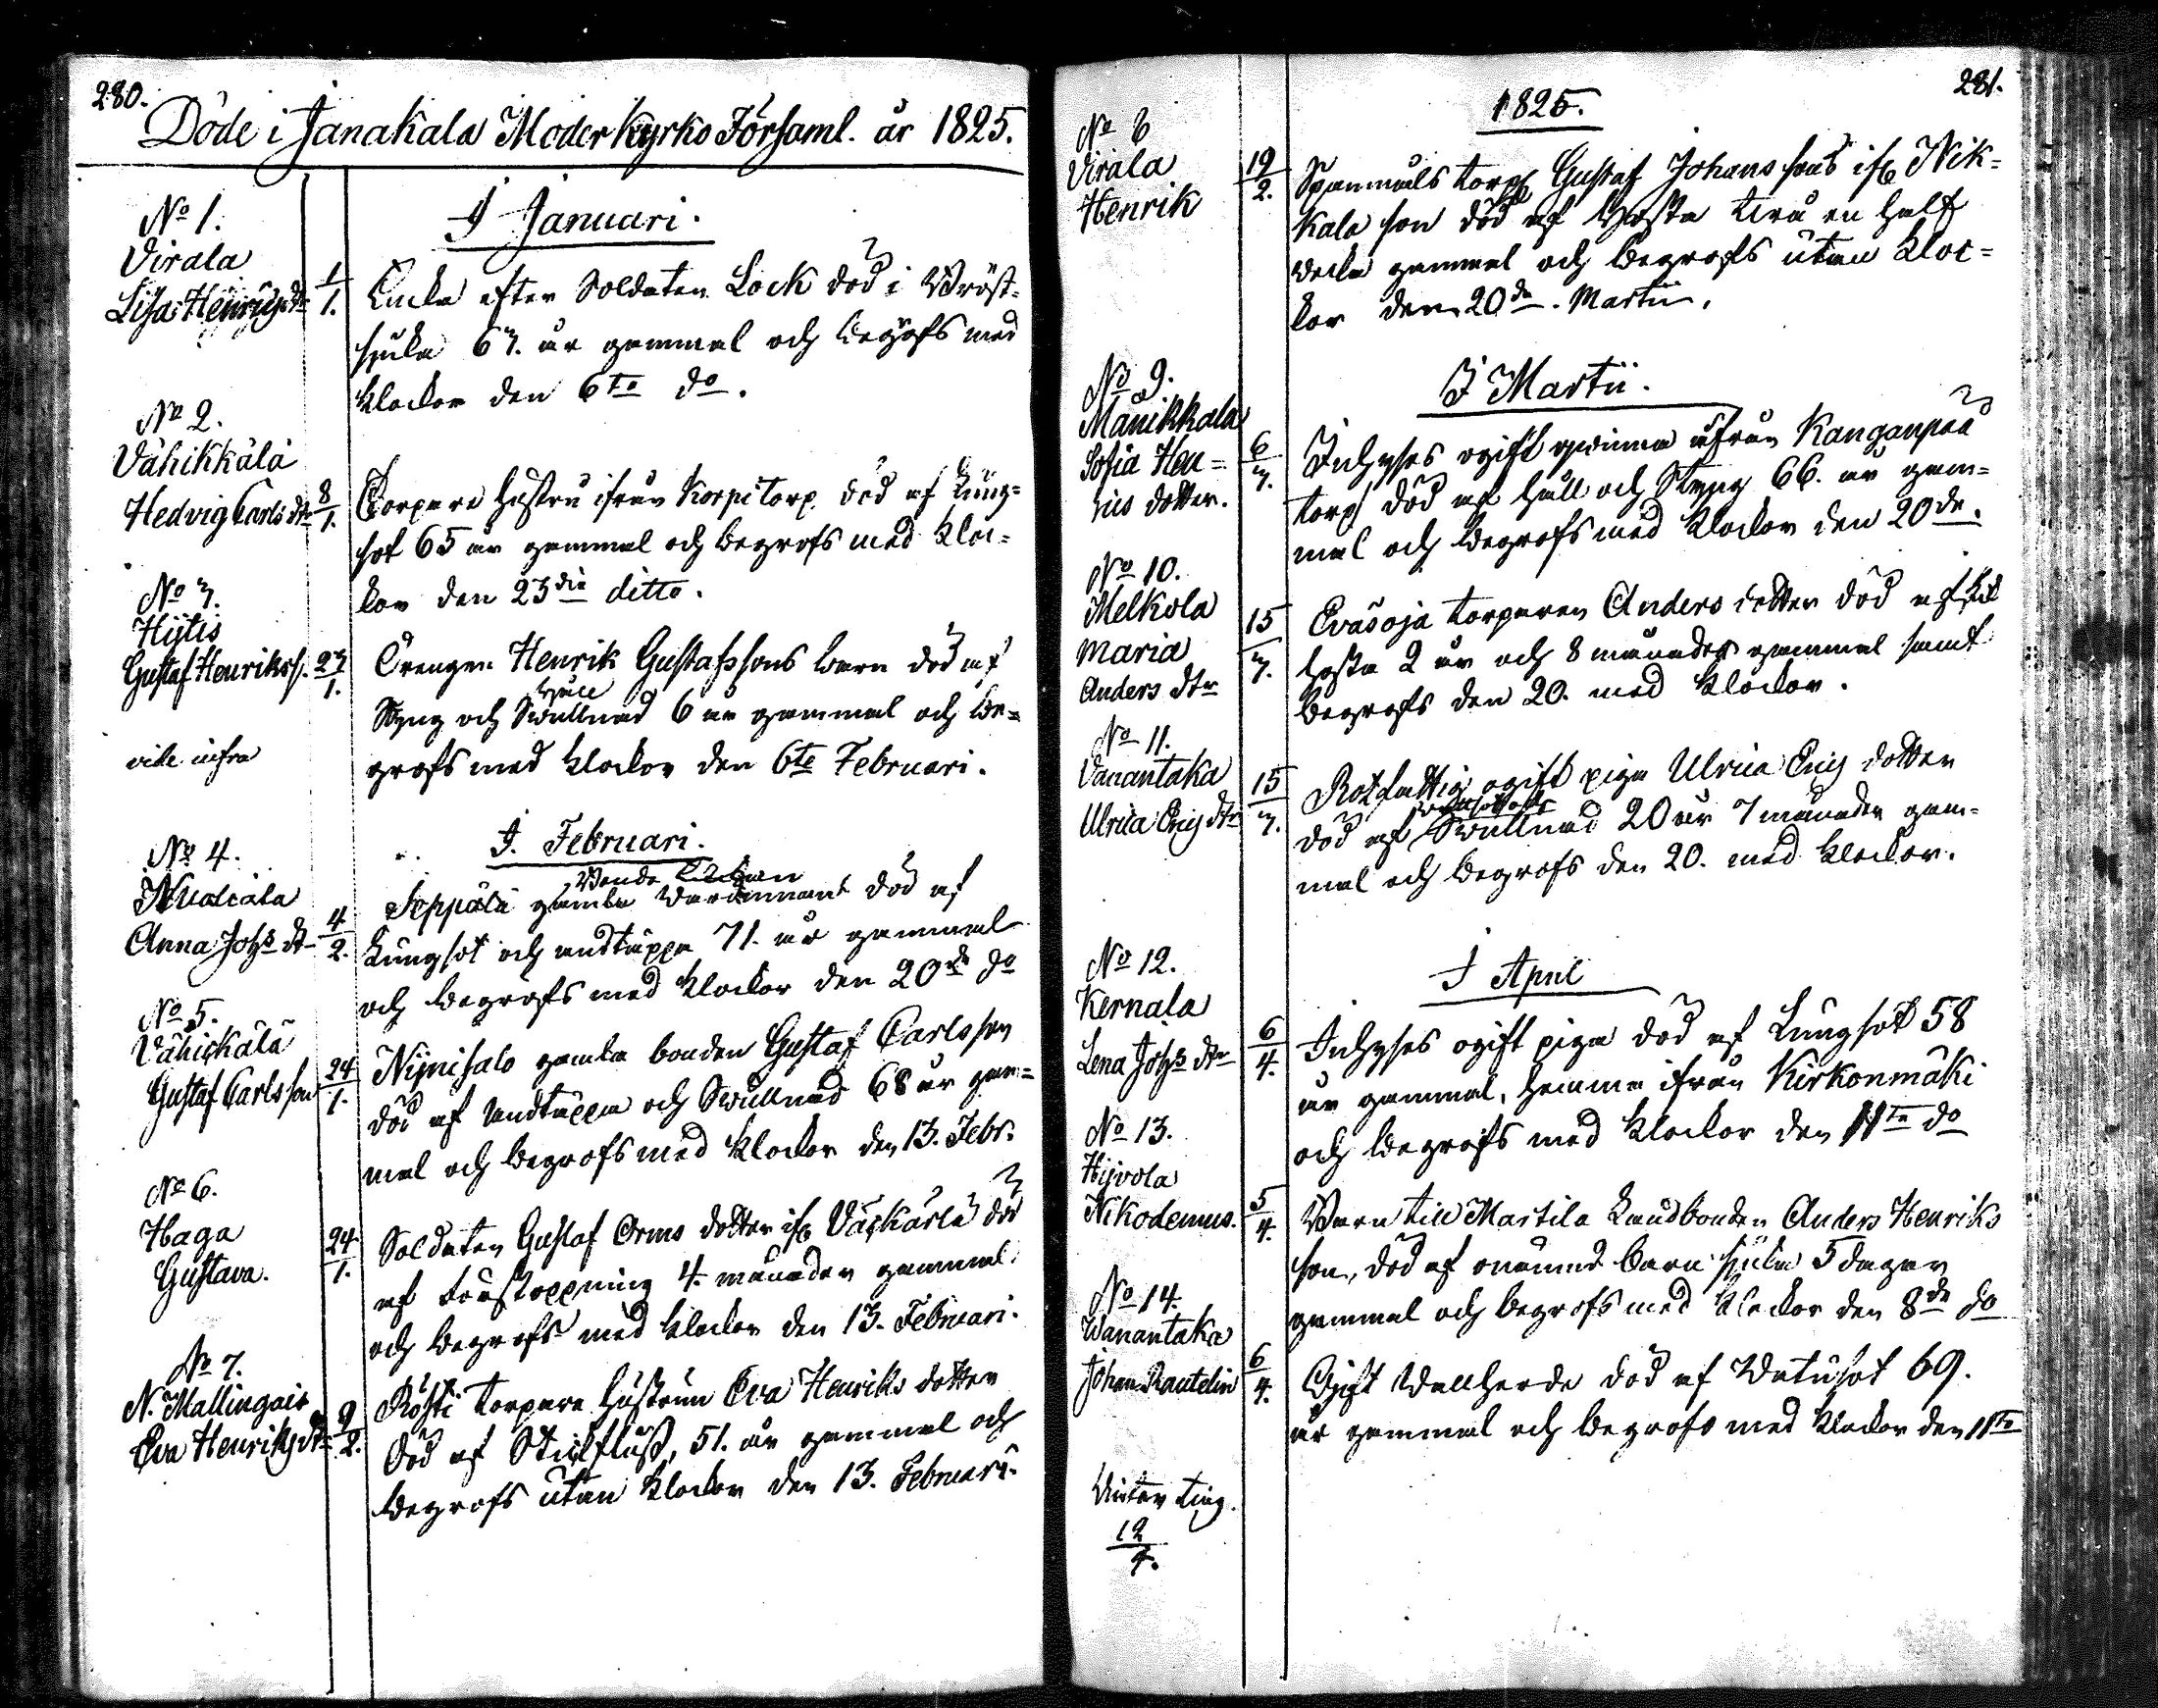 280.
Döde i Janakala Moderkyrko Församl. år 1825.
I Januari.
No 1.
Virala
Lisa Henricsdtr
1/1.
Enka efter Soldaten Lock död i Bröst=
sjuka 67. år gammal och begrofs med
klockor den 6te do.
No 2.
Vähikkälä
Hedvig Carlsdtr
8/1.
Torpare hustru ifrån Korpi torp död af Lung=
sot 65 år gammal och begrofs med kloc=
kor den 23die ditto.
No 3.
Hijtis
Gustaf Henrikss.
23/1.
vide infra
Drengen Henrik Gustafssons barn död af
Styng och Svullnad 6 år gammal och be=
grofs med klockor den 6te Februari.
I. Februari.
No 4.
Anna Johs dtr
4/2.
Seppälä gamla död af
Lungsot och andtäppa 71. år gammal
och begrofs med klockor den 20de do
No 5.
Vähikälä
Gustaf Carlsson
24/1.
Nijnisalo gamla bonden Gustaf Carlsson
död af Andtäppa och Svullnad 68 år gam=
mal och begrofs med klockor den 13. Febr.
No 6.
Haga
Gustava.
24/1.
Soldaten Gustaf Orms dotter ifr. död
af 4. månader gammal.
och begrofs med klockor den 13. Februari.
No 7.
N. Mallingais
Eva Henriksdtr
9/2.
torpare hustrun Eva Henriks dotter
död af Stickfluss, 51. år gammal och
begrofs utan klockor den 13. Februari.
281.
1825.
No 8
Virala
Henrik
19/2.
torp. Gustaf Johanssons ifr. Nik=
kala son död af Hosta en half
vecka gammal och begrofs utan kloc=
kor den 20de. Martii.
I Martii.
No 9.
Mänikkala
Sofia Hen=
rics dotter.
6/3.
Inhyses ogift qvinna ifrån Kanganpää
torp död af Håll och Styng 66. år gam=
mal och begrofs med klockor den 20de.
No 10.
Melkola
Maria
Anders dtr
15/3.
Eväsoja torparen Anders dotter död af Kik
hosta 2 år och 8 månader gammal samt
begrofs den 20. med klockor.
No 11.
Vanantaka
Ulrica Ericsdtr
15/3.
Rotfattig ogift piga Ulrica Erics dotter
död af Svullnad 20 år 7 månader gam=
mal och begrofs den 20. med klockor.
I April
No 12.
Kernala
Lena Johs dtr
6/4.
Inhyses ogift piga död af Lungsot 58
år gammal, hemma ifrån Kirkonmäki
och begrofs med klockor den 11te do
No 13.
Hijvola
Nikodemus.
5/4.
Barn till Martila Landbonden Anders Henriks
son, död af onämnd barn sjuka 5 dagar
gammal och begrofs med klockor den 8de do
No 14.
Wanantaka
Johan Rautelin
6/4.
Gift Vallherde död af Vatusot 69.
år gammal och begrofs med klockor den 11te
Vinter ting.
12/4.